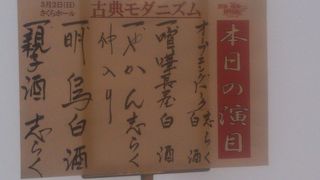 3月2日(日)
さくらホール
古典モダニズム
本日の演目
オープニングトーク 志らく 白酒
一、喧嘩長屋 白酒
一、やかん 志らく
仲入り
一、明烏 白酒
一、親子酒 志らく